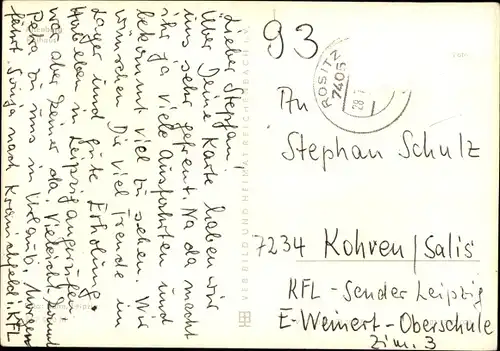 Lieber Stephan,
Über Deine Karte haben wir
uns sehr gefreut. Na da macht
ihr ja viele Ausfahrten und
bekommt viel zu sehen. Wir
wünschen Dir viel Freude im
Lager und gute Erholung.
Hab eben in Leipzig angerufen
wo aber keiner da. Vielleicht kommt
Petra zu uns in Urlaub. Morgen
fährt Sonja nach Kranichfeld i. KFL
VEB BILD UND HEIMAT REICHENBACH
93
ROSITZ
7405
28
An
Stephan Schulz
7234 Kohren/Salis
KFL - Sender Leipzig
E-Weinert-Oberschule
Zim. 3